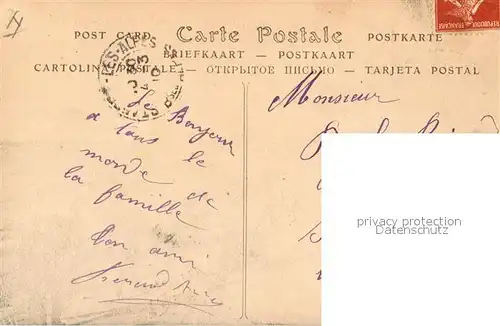 POST CARD Carte Postale POSTKARTE
BRIEFKAART — POSTKAART
CARTOLINA POSTALE — ОТКРЫТОЕ ПИСЬМО — TARJETA POSTAL
Monsieur
Le Bonjour
a tous le
monde de
la famille
ton ami
privacy protection
Datenschutz